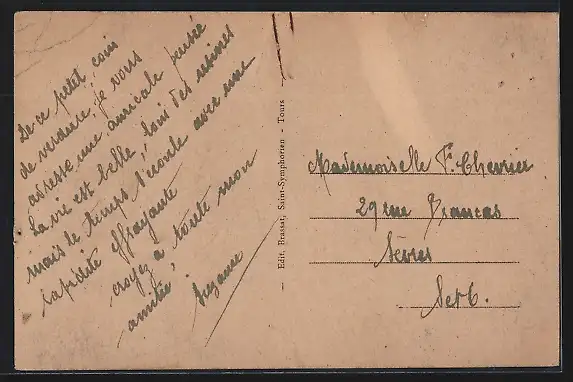 De ce petit coin
de verdure, je vous
adresse une amicale pensée
La vie est belle, loin des usines
mais le temps s'écoule avec une
rapidité effrayante
croyez à toute mon
amitié,
Suzanne
— Edit. Brassat, Saint-Symphorien - Tours —
Mademoiselle F. Chevrier
29 rue Brancas
Sèvres
Set O.